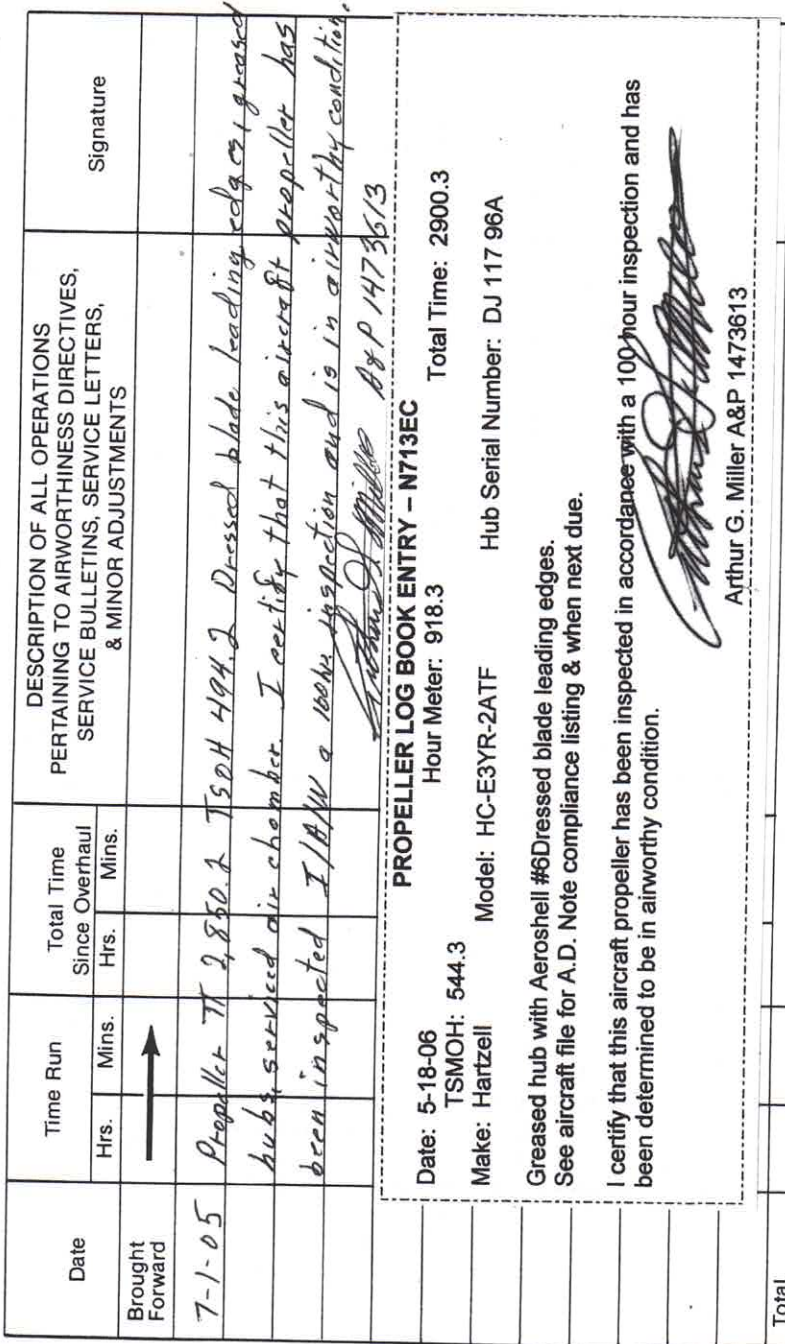 Date
Time Run
Total Time
Since Overhaul
DESCRIPTION OF ALL OPERATIONS
PERTAINING TO AIRWORTHINESS DIRECTIVES,
SERVICE BULLETINS, SERVICE LETTERS,
& MINOR ADJUSTMENTS
Signature
Hrs. Mins. Hrs. Mins.
Brought
Forward
7-1-05 Propeller TT 2,850.2 TSOH 494.2 Dressed blade leading edges, greased
hubs, serviced air chamber. I certify that this aircraft propeller has
been inspected I/A/W a 100hr. inspection and is in airworthy condition.
Arthur G. Miller A&P 1473613
PROPELLER LOG BOOK ENTRY – N713EC
Date: 5-18-06 Hour Meter: 918.3 Total Time: 2900.3
TSMOH: 544.3
Make: Hartzell Model: HC-E3YR-2ATF Hub Serial Number: DJ 117 96A
Greased hub with Aeroshell #6Dressed blade leading edges.
See aircraft file for A.D. Note compliance listing & when next due.
I certify that this aircraft propeller has been inspected in accordance with a 100 hour inspection and has
been determined to be in airworthy condition.
Arthur G. Miller A&P 1473613
Total